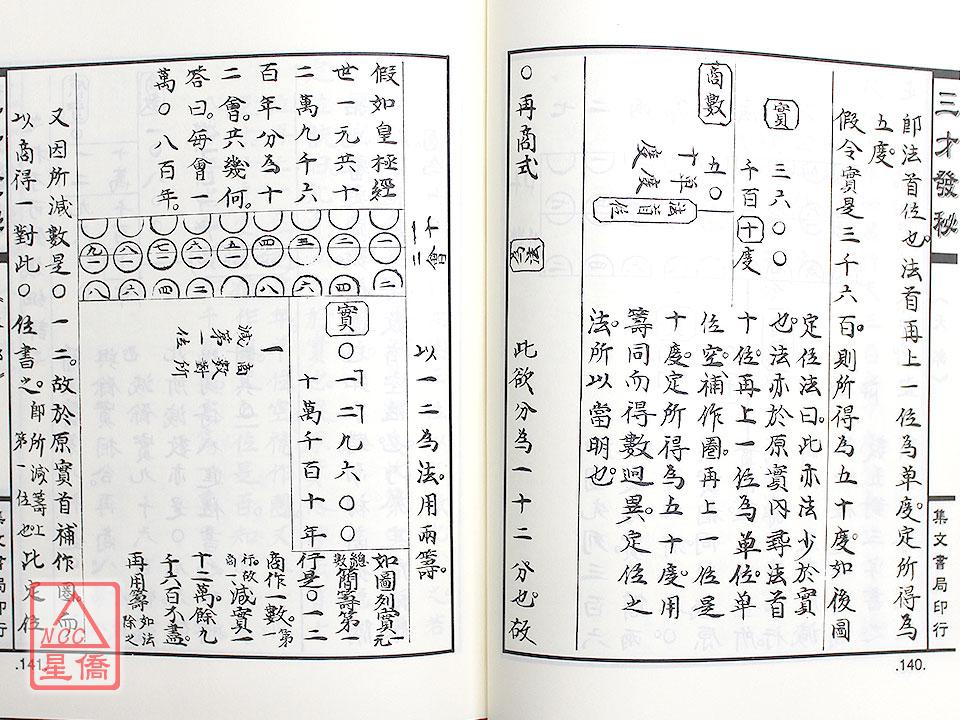 三才發秘
集文書局印行
.140.
即法首位也。法首再上一位為單度。定所得為
五度。
假令實是三千六百。則所得為五十度。如後圖
實
三六〇〇
千百十度
商數
五〇
十單度
法首位
定位法曰。此亦法少於實
也。法亦於原實內尋法首
十位。再上一位為單位。單
位空。補作圈。再上一位是
十度。定所得為五十度。用
籌同而得數迥異。定位之
法。所以當明也。
〇再商式
此欲分為一十二分也。故
以一二為法。用兩籌。
假如皇極經
世一元共十
二萬九千六
百年。分為十
二會。共幾何。
答曰。每會一
萬〇八百年。
十二會
實
〇一二九六〇〇
十萬千百十年
一商數對所減第一位
如圖列實元總數。
簡籌第一
行是〇一二
商作一數。第一
行。故商一。減實
十二萬。餘九
千六百不盡。
再用籌如法除之
又因所減數是〇一二。故於原實首補作圈。而
以商得一對此〇位書之。即所減籌上第一位也。此定位
.141.
NCC
星僑